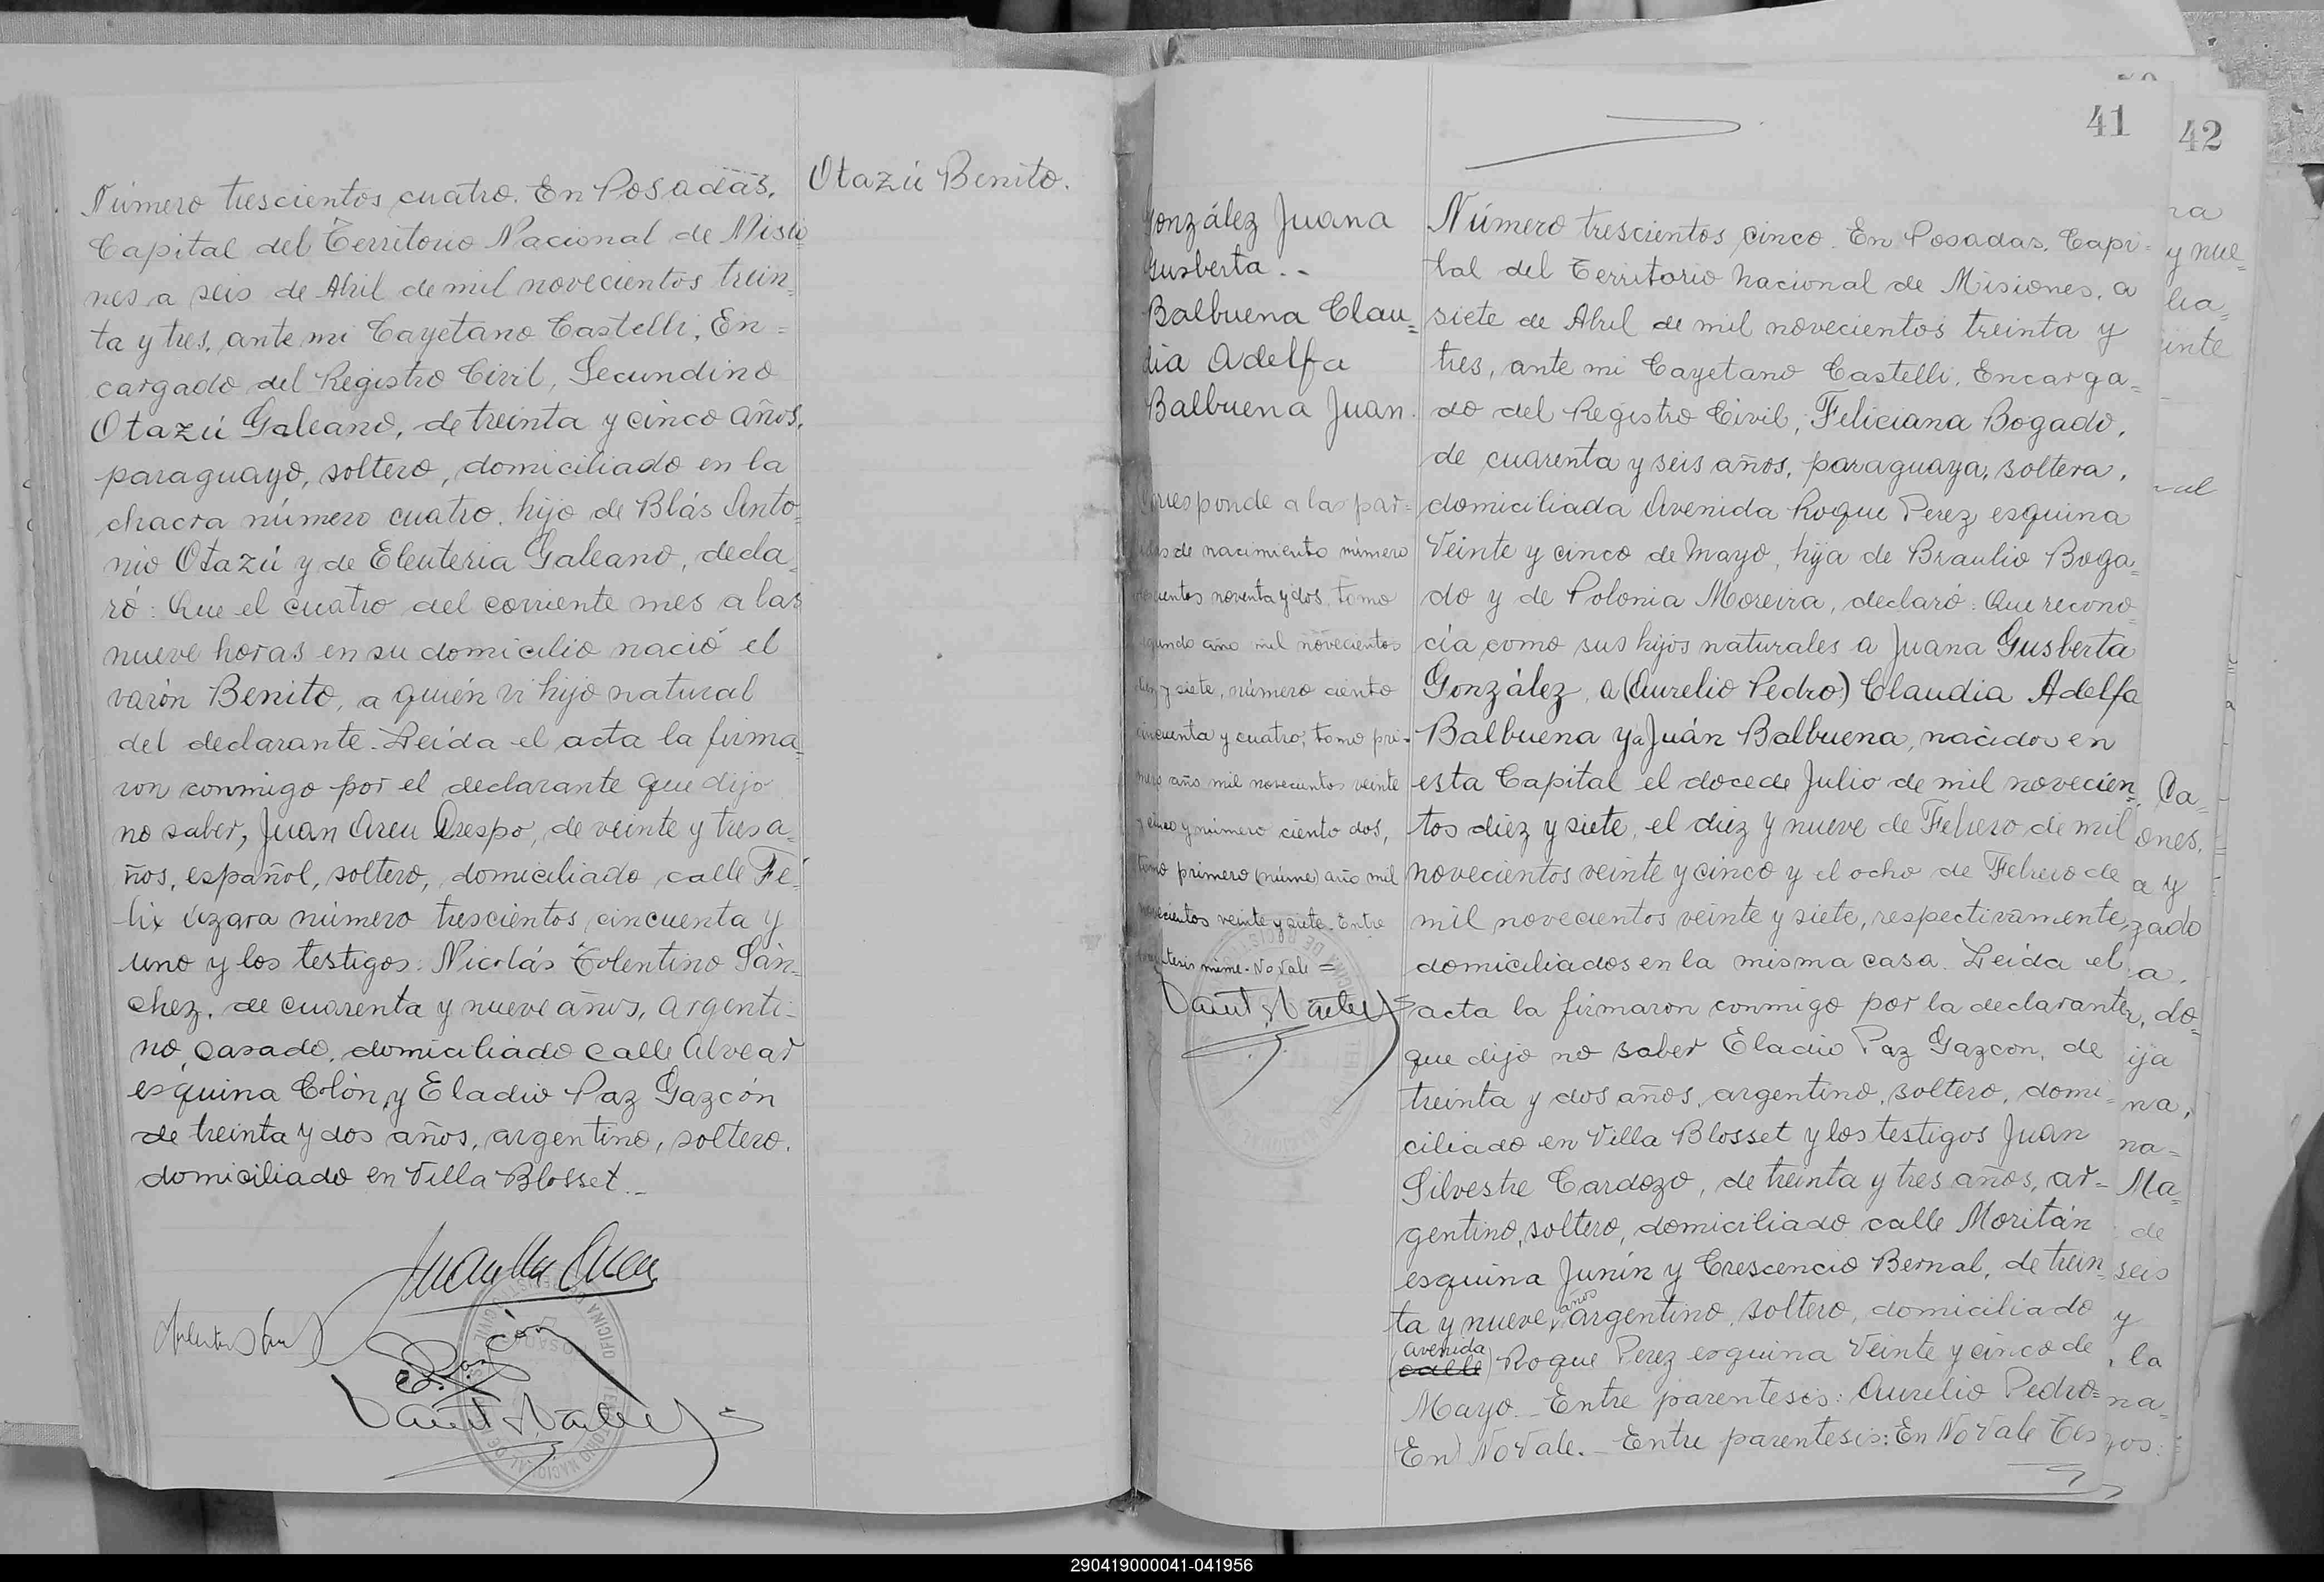 Número trescientos cuatro. En Posadas,
Capital del Territorio Nacional de Misio
nes a seis de Abril de mil novecientos trein-
ta y tres, ante mi Cayetano Castelli, En=
cargado del Registro Civil, Secundino
Otazú Galeano, de treinta y cinco años,
paraguayo, soltero, domiciliado en la
chacra número cuatro, hijo de Blás Anto-
nio Otazú y de Eleuteria Galeano, decla-
ró: Que el cuatro del corriente mes a las
nueve horas en su domicilio nació el
varón Benito, a quién vi hijo natural
del declarante. Leida el acta la firma-
ron conmigo por el declarante que dijo
no saber, Juan Areu Crespo, de veinte y tres a-
ños, español, soltero, domiciliado calle Fé-
lix Azara número trescientos cincuenta y
uno y los testigos: Nicolás Tolentino Sán-
chez, de cuarenta y nueve años, argenti-
no, casado, domiciliado calle Alvear
esquina Colón y Eladio Paz Gazcón
de treinta y dos años, argentino, soltero,
domiciliado en Villa Blosset.-
Otazú Benito.
41
42
González Juana
Gusberta.-
Balbuena Clau=
dia Adelfa
Balbuena Juan.
Corresponde a las par=
tidas de nacimiento número
novecientos noventa y dos, tomo
segundo año mil novecientos
diez y siete, número ciento
cincuenta y cuatro, tomo pri-
mero año mil novecientos veinte
y cinco y número ciento dos,
tomo primero (núme) año mil
novecientos veinte y siete. Entre
paréntesis núme. No Vale =
Número trescientos cinco. En Posadas, Capi=
tal del Territorio Nacional de Misiones, a
siete de Abril de mil novecientos treinta y
tres, ante mi Cayetano Castelli, Encarga=
do del Registro Civil, Feliciana Bogado,
de cuarenta y seis años, paraguaya, soltera,
domiciliada Avenida Roque Perez esquina
Veinte y cinco de Mayo, hija de Braulio Boga=
do y de Polonia Moreira, declaró: Que recono
cía como sus hijos naturales a Juana Gusberta
González, a (Aurelio Pedro) Claudia Adelfa
Balbuena y a Juán Balbuena, nacidos en
esta Capital el doce de Julio de mil novecien=
tos diez y siete, el diez y nueve de Febrero de mil
novecientos veinte y cinco y el ocho de Febrero de
mil novecientos veinte y siete, respectivamente,
domiciliados en la misma casa. Leida el
acta la firmaron conmigo por la declarante
que dijo no saber Eladio Paz Gazcon, de
treinta y dos años, argentino, soltero, domi-
ciliado en Villa Blosset y los testigos Juan
Silvestre Cardozo, de treinta y tres años, ar-
gentino, soltero, domiciliado calle Moritán
esquina Junín y Crescencio Bernal, de trein-
ta y nueve años argentino, soltero, domiciliado
(calle) avenida Roque Perez esquina Veinte y cinco de
Mayo.- Entre parentesis: Aurelio Pedro=
En) No Vale.- Entre parentesis: En No Vale Tes
290419000041-041956